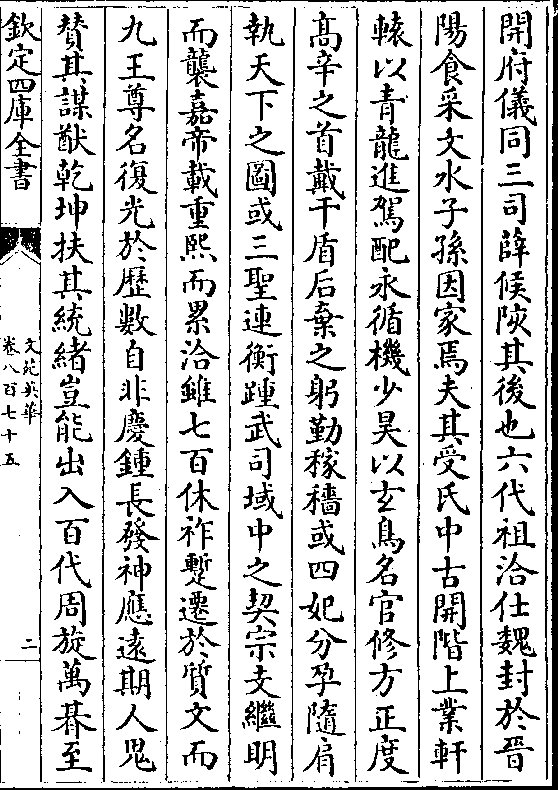 開府儀同三司薛侯陝其後也六代祖洽仕魏封於晉
陽食采文水子孫因家焉夫其受氏中古開階上業軒
轅以青龍進駕配永循機少昊以玄鳥名官修方正度
髙辛之首戴干盾后棄之躬勤稼穡或四妃分孕隨肩
執天下之圖或三聖連衡踵武司域中之契宗支繼明
而襲嘉帝載重熙而累洽雖七百休祚蹔遷於質文而
九王尊名復光於歴數自非慶鍾長發神應遠期人鬼
賛其謀猷乾坤扶其統緒豈能出入百代周旋萬朞至
欽定四庫全書
文苑英華
卷八百七十五
二